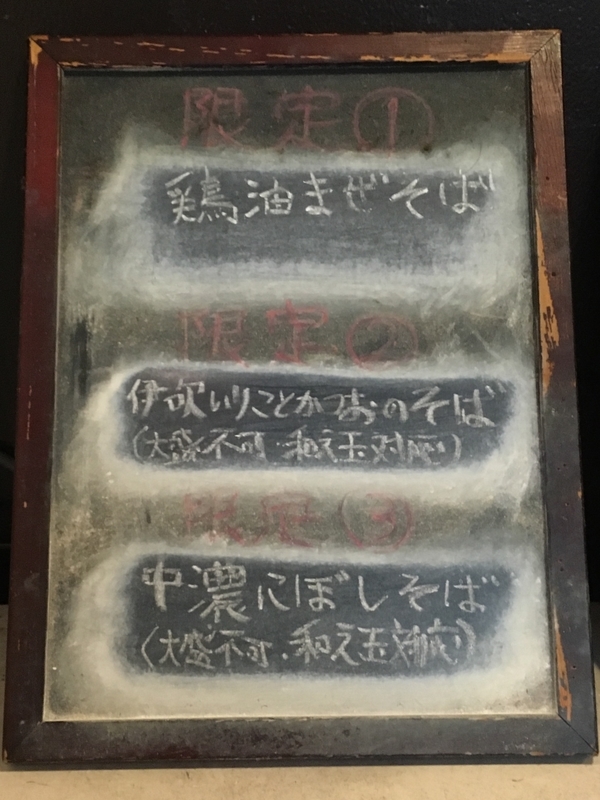 限定①
鶏油まぜそば
限定②
伊吹いりことかつおのそば
(大盛不可・和え玉対応)
限定③
中濃にぼしそば
(大盛不可・和え玉対応)